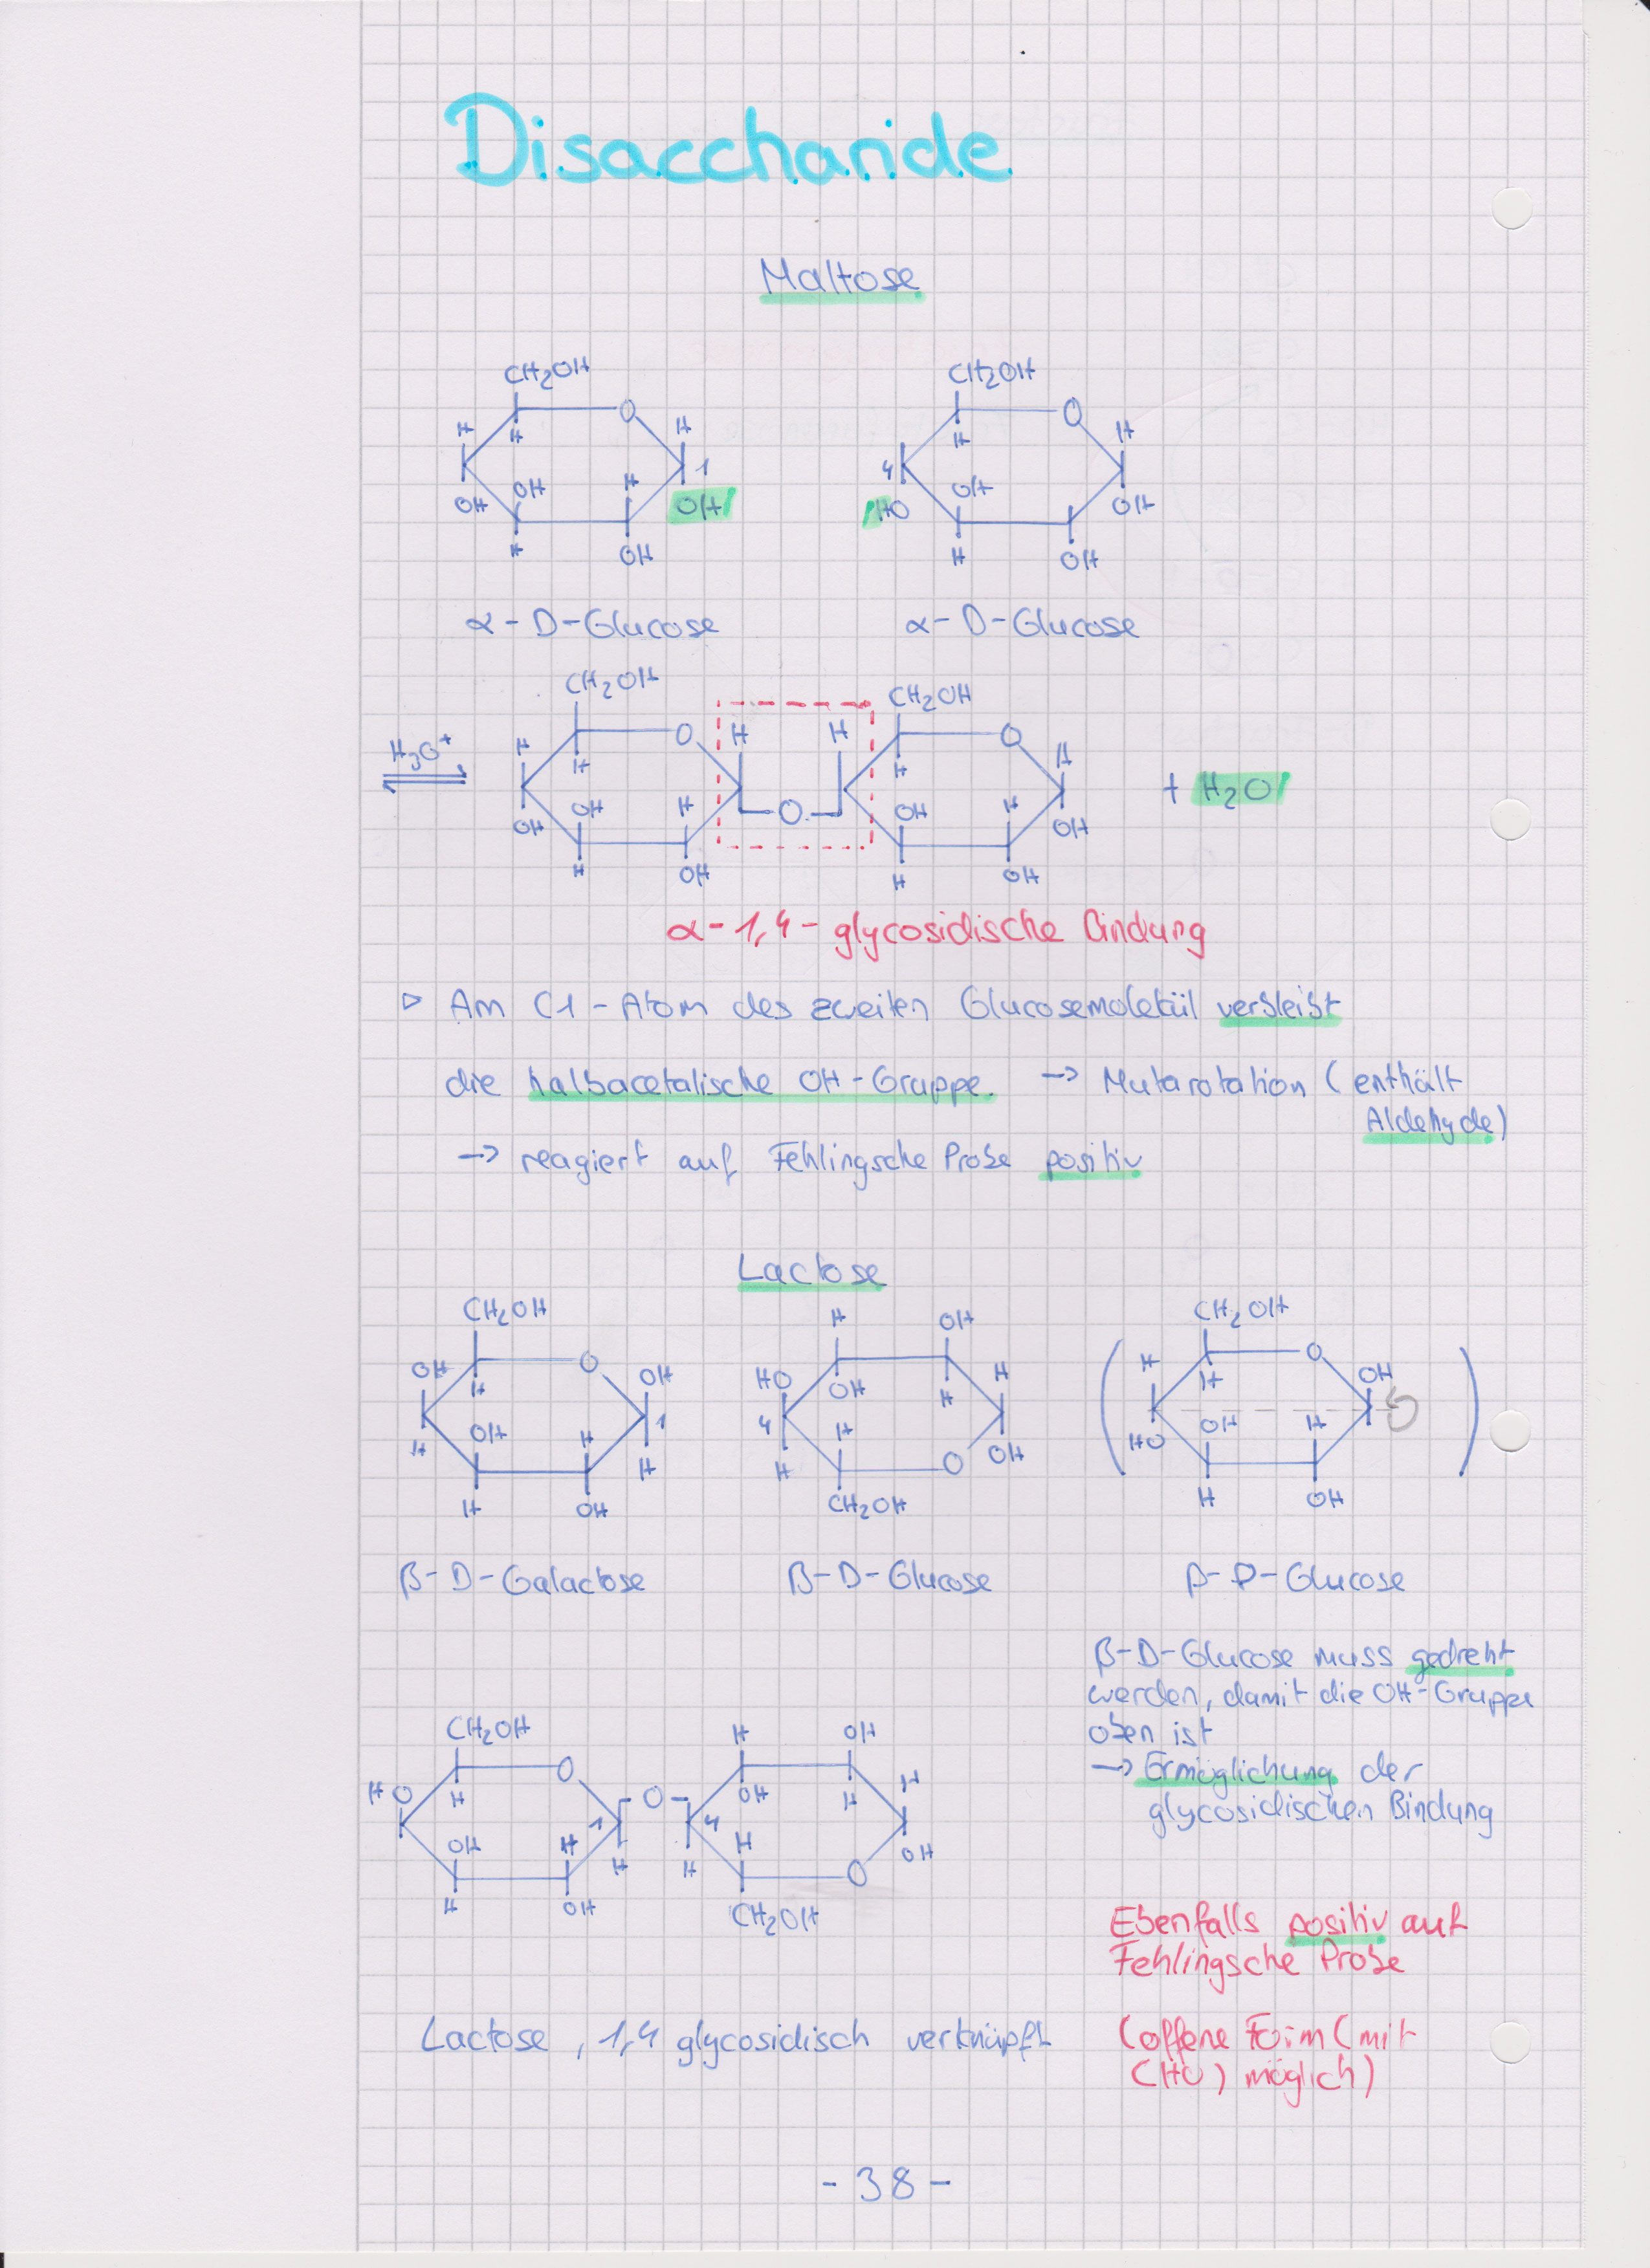 Disaccharide
Maltose
CH2OH CH2OH
O O
H H H H
H H
4 1
OH OH H OH
OH OH HO OH
H OH H OH
α-D-Glucose α-D-Glucose
CH2OH CH2OH
H3O+ H H O H H H O H
+ H2O
OH OH H O OH H OH
H OH H OH
α-1,4-glycosidische Bindung
▷ Am C1-Atom des zweiten Glucosemolekül verbleibt
die halbacetalische OH-Gruppe. → Mutarotation (enthält
Aldehyde)
→ reagiert auf Fehlingsche Probe positiv
Lactose
CH2OH H OH CH2OH
OH H O OH HO OH H H H H O OH
H OH H 1 H 4 H H O OH HO OH H
H OH CH2OH H OH
β-D-Galactose β-D-Glucose β-D-Glucose
β-D-Glucose muss gedreht
werden, damit die OH-Gruppe
oben ist
→ Ermöglichung der
glycosidischen Bindung
CH2OH H OH
HO H O O OH H H
OH H 1 H 4 H H O OH
H OH CH2OH
Ebenfalls positiv auf
Fehlingsche Probe
Lactose, 1,4 glycosidisch verknüpft
(offene Form (mit
CHO) möglich)
- 38 -